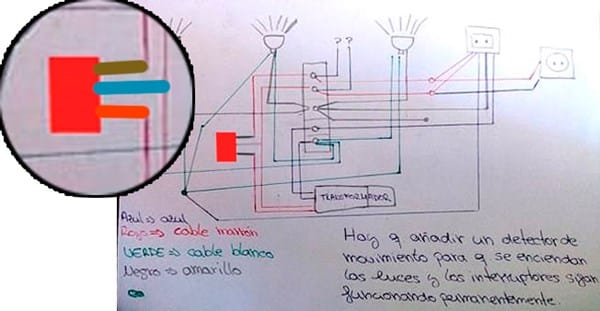 ? ?
TRANSFORMADOR
Azul => azul
Rojo => cable marrón
VERDE => cable blanco
Negro => amarillo
Hay q añadir un detector de
movimiento para q se enciendan
las luces y los interruptores sigan
funcionando permanentemente.